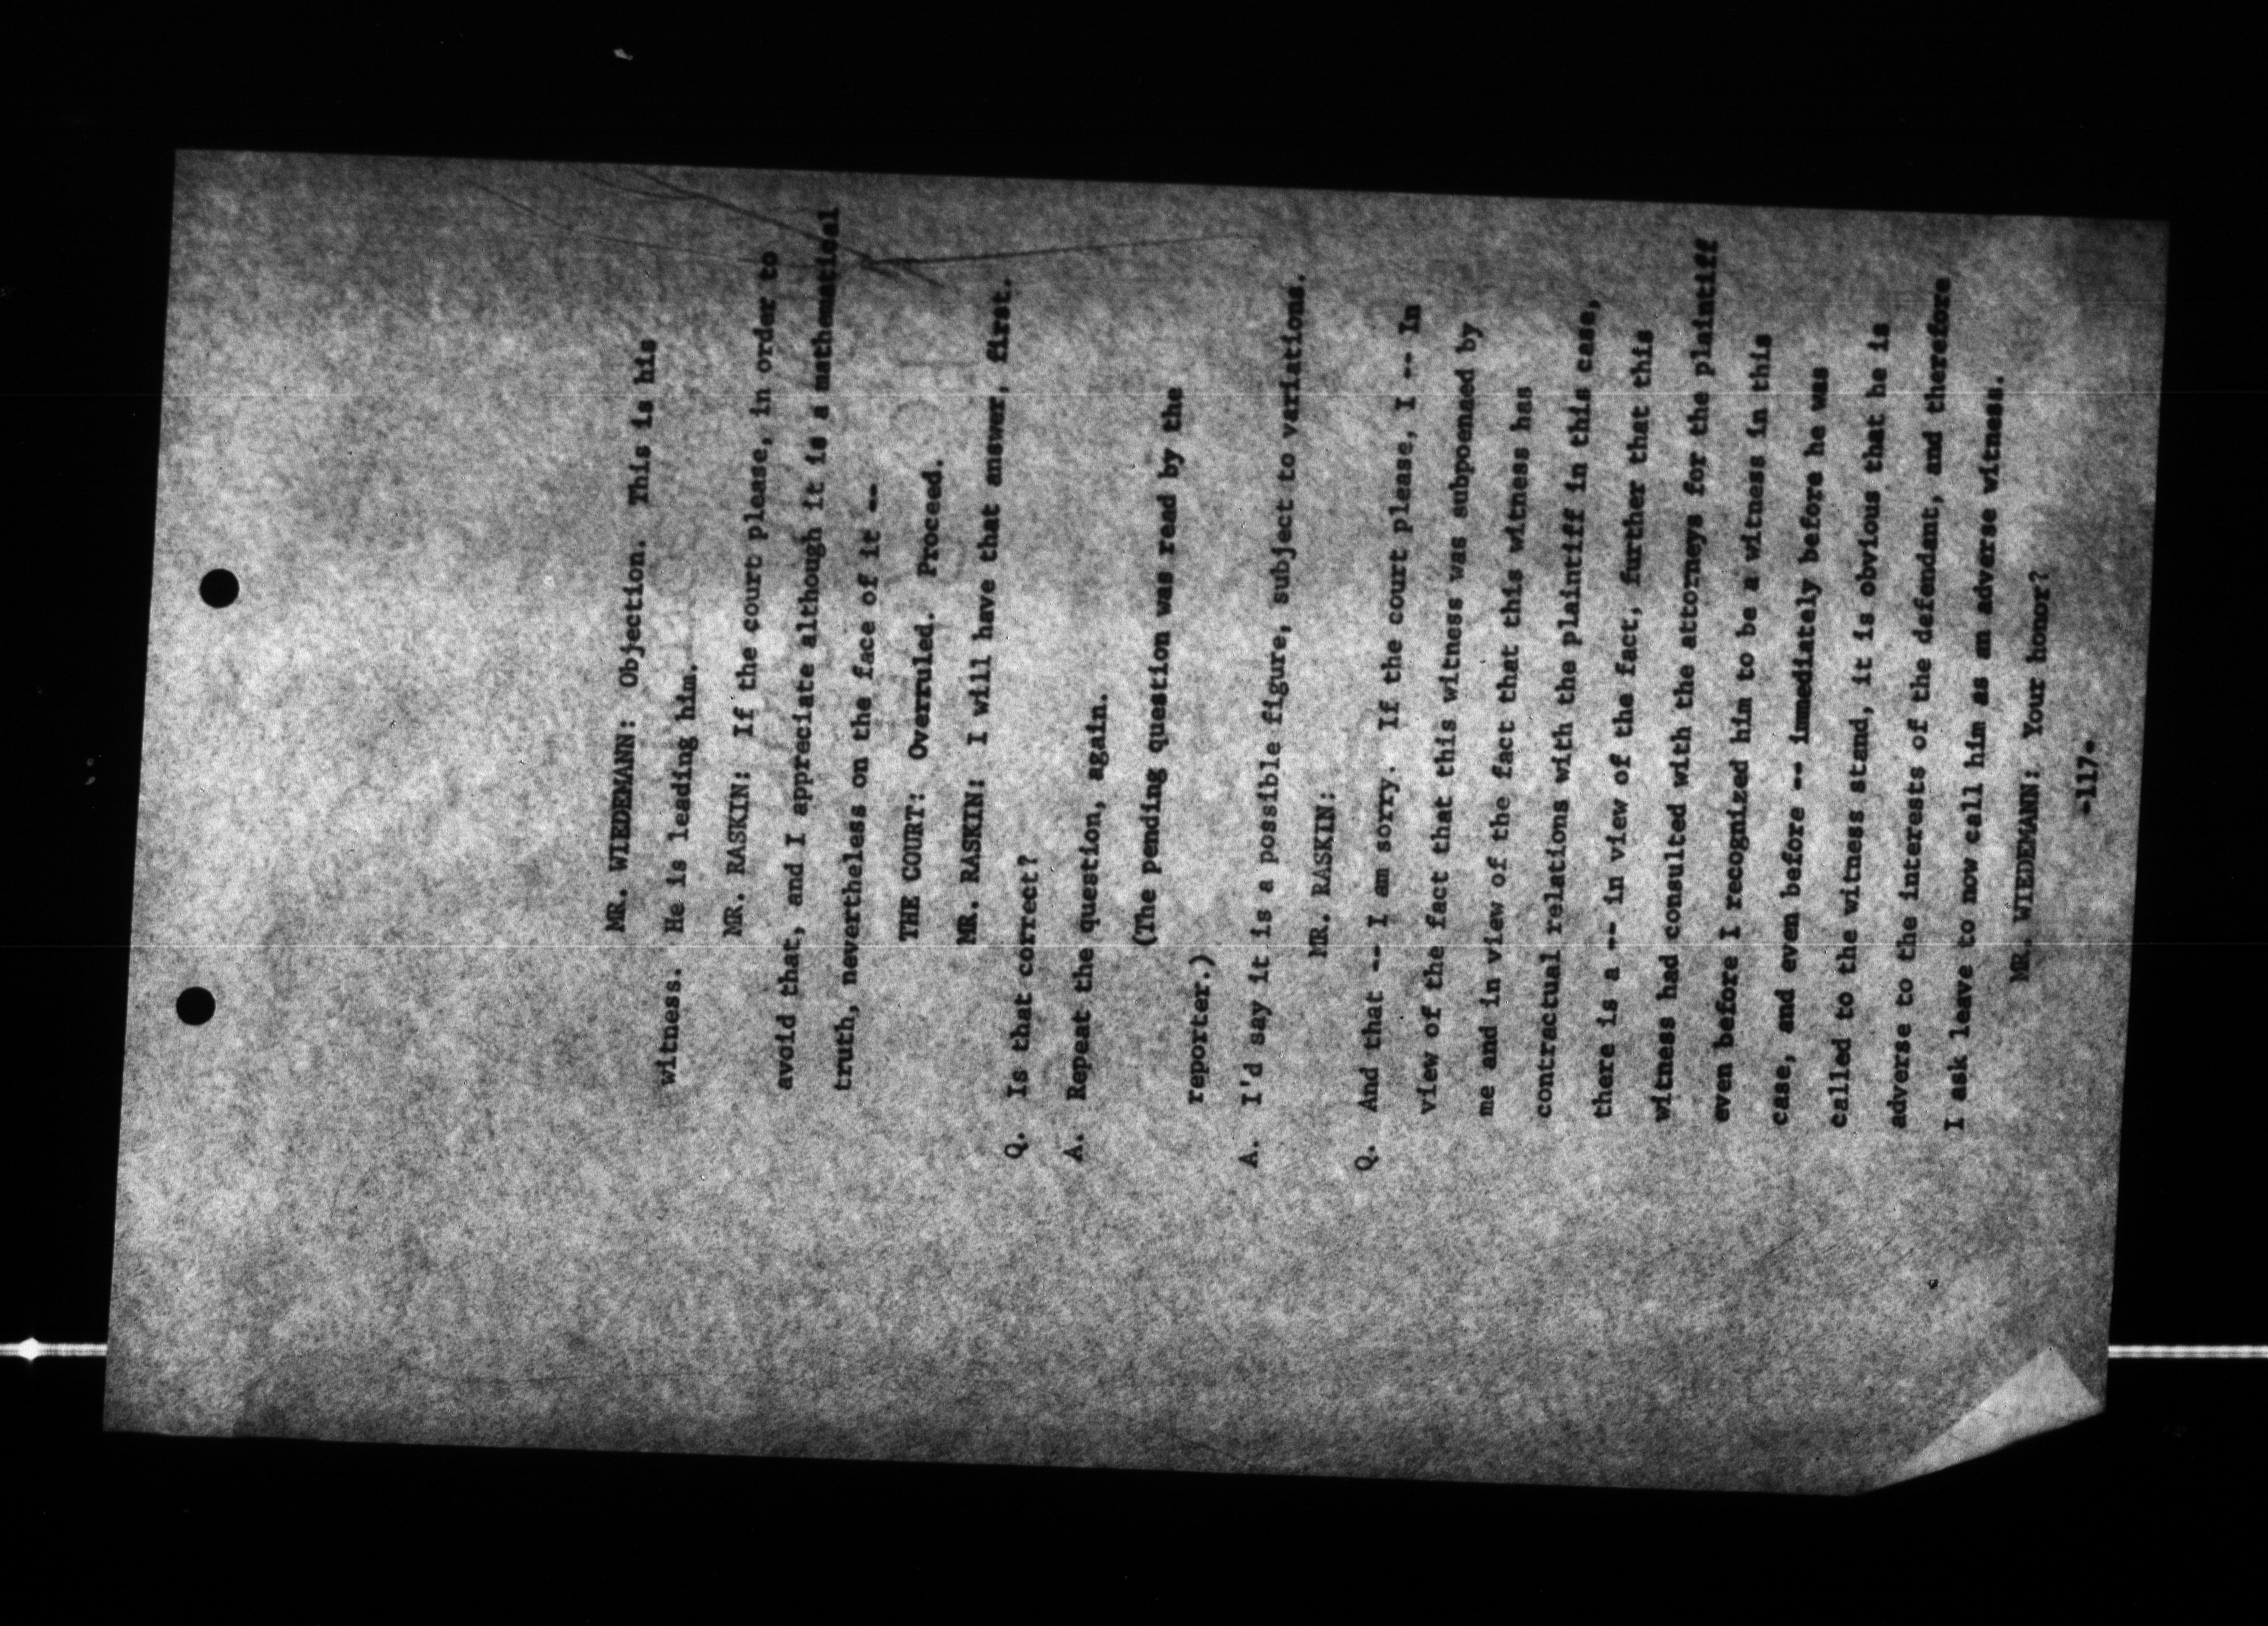 MR. WIEDEMANN: Objection. This is his
witness. He is leading him.
MR. RASKIN: If the court please, in order to
avoid that, and I appreciate although it is a mathematical
truth, nevertheless on the face of it --
THE COURT: Overruled. Proceed.
MR. RASKIN: I will have that answer, first.
Q. Is that correct?
A. Repeat the question, again.
(The pending question was read by the
reporter.)
A. I'd say it is a possible figure, subject to variations.
MR. RASKIN:
Q. And that -- I am sorry. If the court please, I -- In
view of the fact that this witness was subpoenaed by
me and in view of the fact that this witness has
contractual relations with the plaintiff in this case,
there is a -- in view of the fact, further that this
witness had consulted with the attorneys for the plaintiff
even before I recognized him to be a witness in this
case, and even before -- immediately before he was
called to the witness stand, it is obvious that he is
adverse to the interests of the defendant, and therefore
I ask leave to now call him as an adverse witness.
MR. WIEDEMANN: Your honor?
-117-